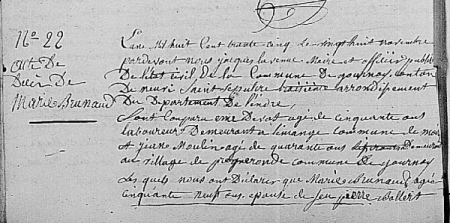 No 22
Acte De
Décès De
Marie Brunaud
L'an mil huit Cent trante Cinq le vingt huit novembre
pardevant nous jacques la venue Maire et officier public
De l'état Civil de la Commune De gournay Canton
De neuvi Saint sepulcre troisieme arrondissement
Du Departement De l'indre
Sont Comparu Devot agé de cinquante ans
laboureur Demeurant a limange commune De
et jeune Moulin agé de quarante ans
au village de commune De gournay
les quels nous ont Déclarer que Marie Brunaud agée
cinquante neuf ans epouse de feu pierre